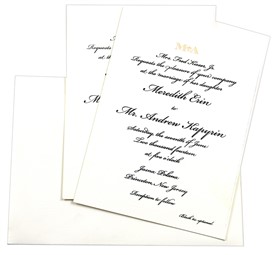 M&A
Mrs. Fred Kaner, Jr.
Requests the pleasure of your company
at the marriage of her daughter
Meredith Erin
to
Mr. Andrew Kapyrin
Saturday, the seventh of June
Two thousand fourteen
at five o'clock
Princeton, New Jersey
Reception to follow
Black tie optional